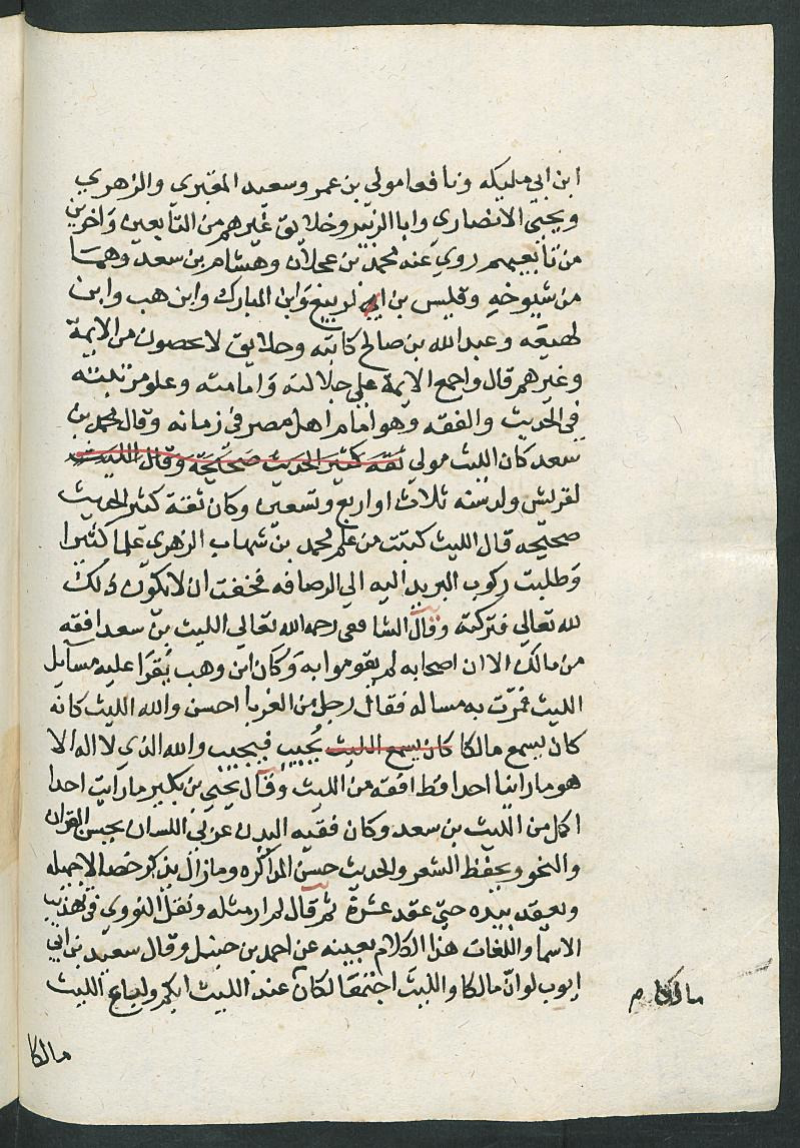 ابن ابي مليكه ونافعا مولي بن عمر وسعيد المقبري والزهري
ويحيي الانصاري وابا الزبير وخلايق غيرهم من التابعين واخرين
من تابعيهم روي عنه محمد بن عجلان وهشام بن سعد وهما
من شيوخه وقليس بن الربيع وابن المبارك وابن هب وابن
لهيعه وعبد الله بن صالح كاتبه وخلايق لا يحصون من الايمة
وغيرهم قال واجمع الايمة علي جلالته وامامته وعلو مرتبته
في الحديث والفقه وهو امام اهل مصر في زمانه وقال محمد بن
سعد كان الليث مولي ثقه كثير الحديث صحيحه وقال الليث
لقريش ولد سنه ثلاث او اربع وتسعين وكان ثقة كثير الحديث
صحيحه قال الليث كتبت من علم محمد بن شهاب الزهري علما كثيرا
وطلبت ركوب البريد اليه الي الرصافه فخفت ان لا يكون ذلك
لله تعالي فتركته وقال الشافعي رحمه الله تعالي الليث بن سعد افقه
من مالك الا ان اصحابه لم يقوموا به وكان ابن وهب يقرا عليه مسايل
الليث فمرت به مساله فقال رجل من الغربا احسن والله الليث كانه
كان يسمع مالكا كان يسمع الليث يجيب فيجيب والله الذي لا اله الا
هو ما راينا احدا قط افقه من الليث وقال يحيي بن بكير ما رايت احدا
اكمل من الليث بن سعد وكان فقيه البدن عربي اللسان يحسن القران
والنحو ويحفظ الشعر والحديث حسن المذاكره وما زال يذكر خصالا جميله
ويعقد بيده حتي عقد عشرة ثم قال لم ار مثله ونقل النووي في تهذيب
الاسما واللغات هذا الكلام بعينه عن احمد بن حنبل وقال سعيد بن ابي
ايوب لو ان مالكا والليث اجتمعا لكان عند الليث ابكم ولباع الليث
مالكا م
مالكا